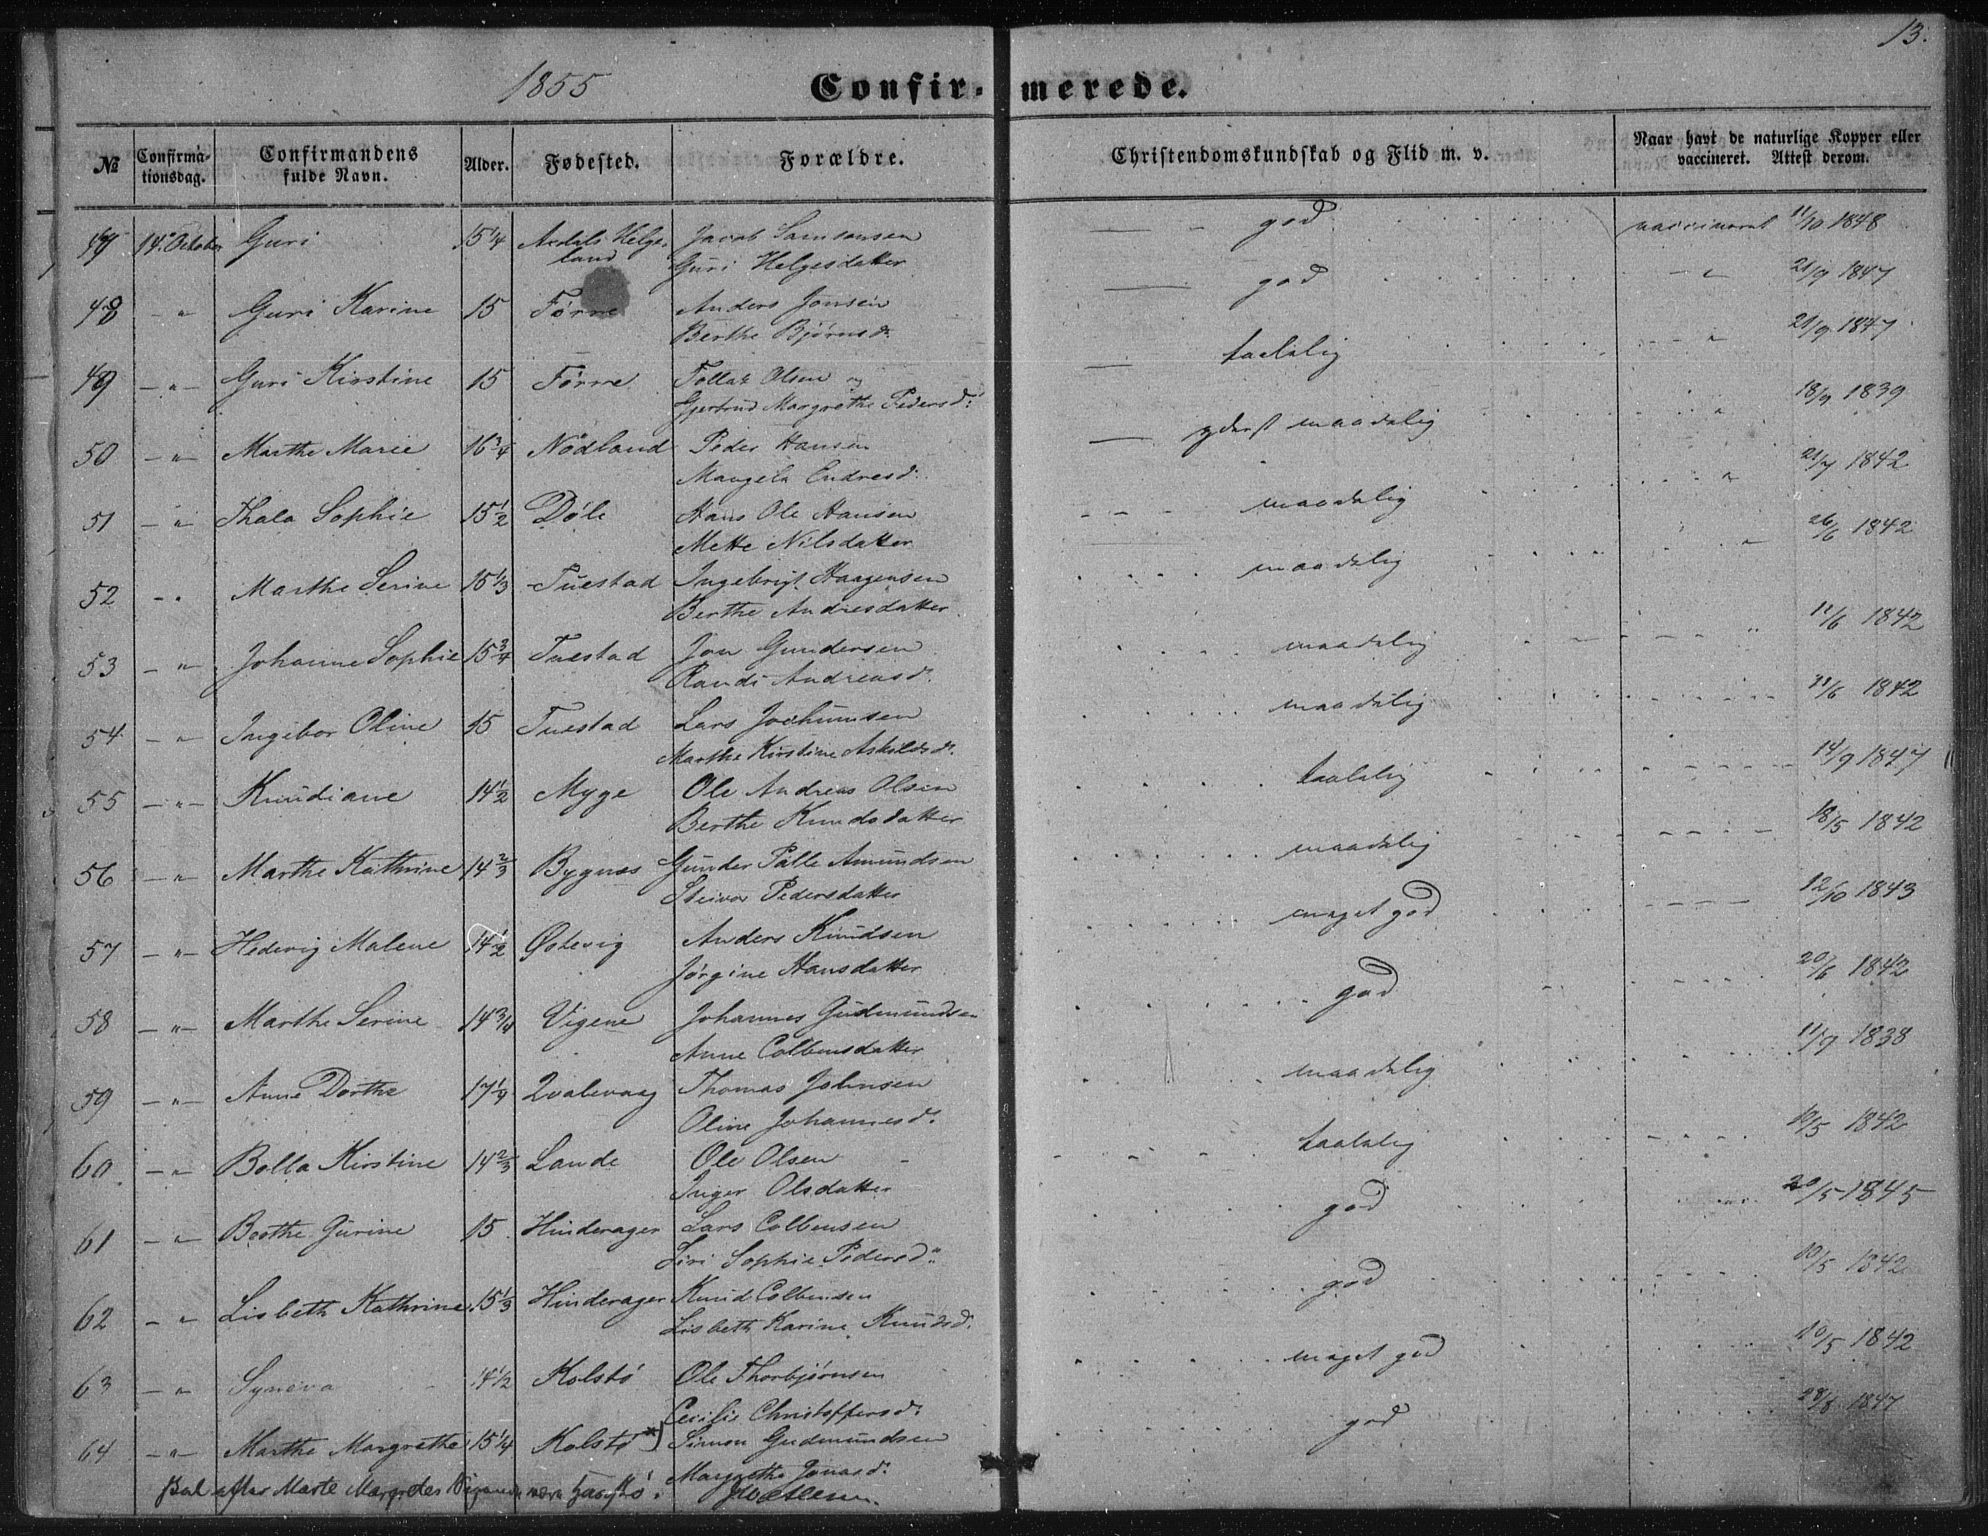 13.
1855 Confirmerede.
№ Confirmationsdag. Confirmandens fulde Navn. Alder. Fødested. Forældre. Christendomskundskab og Flid m. v. Naar havt de naturlige Kopper eller vaccineret. Attest derom.
47 14. October Guri 15 1/4 Ardals Helgeland Jacob Samsonsen god vaccineret 11/10 1848
Guri Helgesdatter
48 - " - Guri Karine 15 Førre Anders Jonsen god - " 21/9 1847
Berthe Bjørnsd.
49 - " - Guri Kirstine 15 Førre Tollak Olsen og taalelig " 21/9 1847
Gjertrud Margrethe Pedersd:
50 - " - Marthe Marie 16 3/4 Nødland Peder Hansen yderst maadelig " 18/9 1839
Mangela Endresd:
51 - " Thala Sophie 15 1/2 Døle Hans Ole Hansen maadelig " 21/7 1842
Mette Nilsdatter
52 - " Marthe Serine 15 1/3 Tuestad Ingebrigt Haagensen maadelig " 26/6 1842
Berthe Andresdatter
53 - " Johanne Sophie 15 3/4 Tuestad Jon Gundersen maadelig " 11/6 1842
Randi Andreasd.
54 - " Ingibor Oline 15 Tuestad Lars Jochumsen maadelig 11/6 1842
Marthe Kirstine Askeldsd.
55 - " - Knudiane 14 1/2 Myge Ole Andreas Olsen taalelig 14/9 1847
Berthe Knudsdatter
56 - " - Marthe Kathrine 14 2/3 Bygnes Gunder Palle Amundsen maadelig 18/5 1842
Steivor Pedersdatter
57 - " - Hedevig Malene 14 1/2 Østevig Anders Knudsen meget god 12/10 1843
Jørgine Hansdatter
58 - " - Marthe Serine 14 3/4 Vigene Johannes Gudmundsen god 20/6 1842
Anne Colbensdatter
59 - " - Anne Dorthe 17 1/4 Qvalevaag Thomas Johnsen maadelig 11/9 1838
Oline Johannesd.
60 - " Bolla Kirstine 14 2/3 Lande Ole Olsen taalelig 10/5 1842
Inger Olsdatter
61 - " - Berthe Gurine 15 Hinderager Lars Colbensen god 20/5 1845
Siri Sophie Pedersd:
62 - " Lisbeth Kathrine 15 1/3 Hinderager Knud Colbensen god 10/5 1842
Lisbeth Karine Knudsd.
63 - " Syneva 14 1/2 Kolstø Ole Thorbjørnsen meget god 10/5 1842
Cecilie Christoffersd:
64 - " - Marthe Margrethe 15 1/4 Kolstø *) Simon Gudmundsen god 28/8 1847
Margrethe Jonasd: